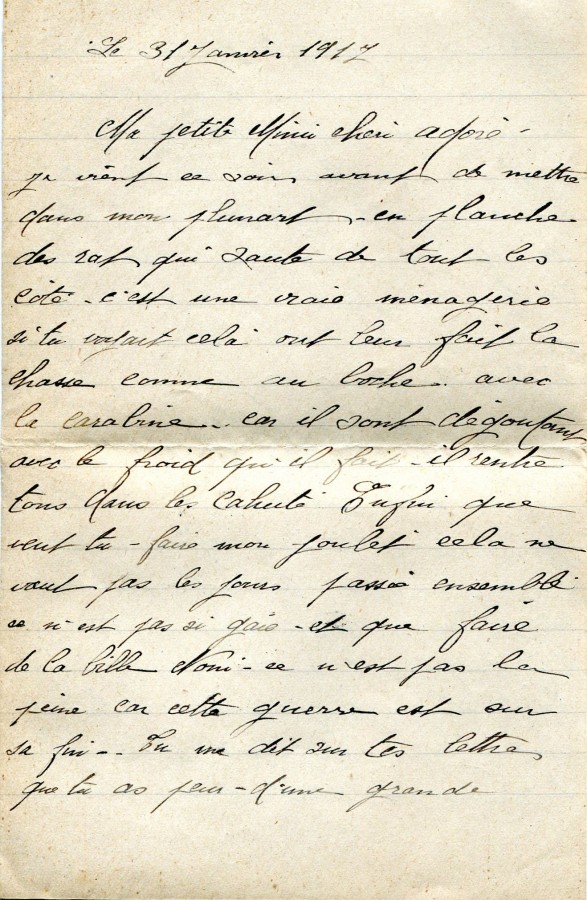 Le 31 Janvier 1917
Ma petite Mimi cheri adoré -
je vient ce soir avant de mettre
dans mon plumart - en planche
des rat qui saute de tout les
côté - c'est une vraie ménagerie
si tu voyait celà ont leur fait la
chasse comme au boche. avec
la carabine - car il sont dégoutant
avec le froid qu'il fait - il rentre
tous dans les cahute Enfin que
veut tu - faire mon poulet cela ne
vaut pas les jours passée ensemble
ce n'est pas si gaie - et que faire
de la bille Noni - ce n'est pas la
peine car cette guerre est sur
sa fin - Tu me dit sur tes lettres
que tu as peur - d'une grande